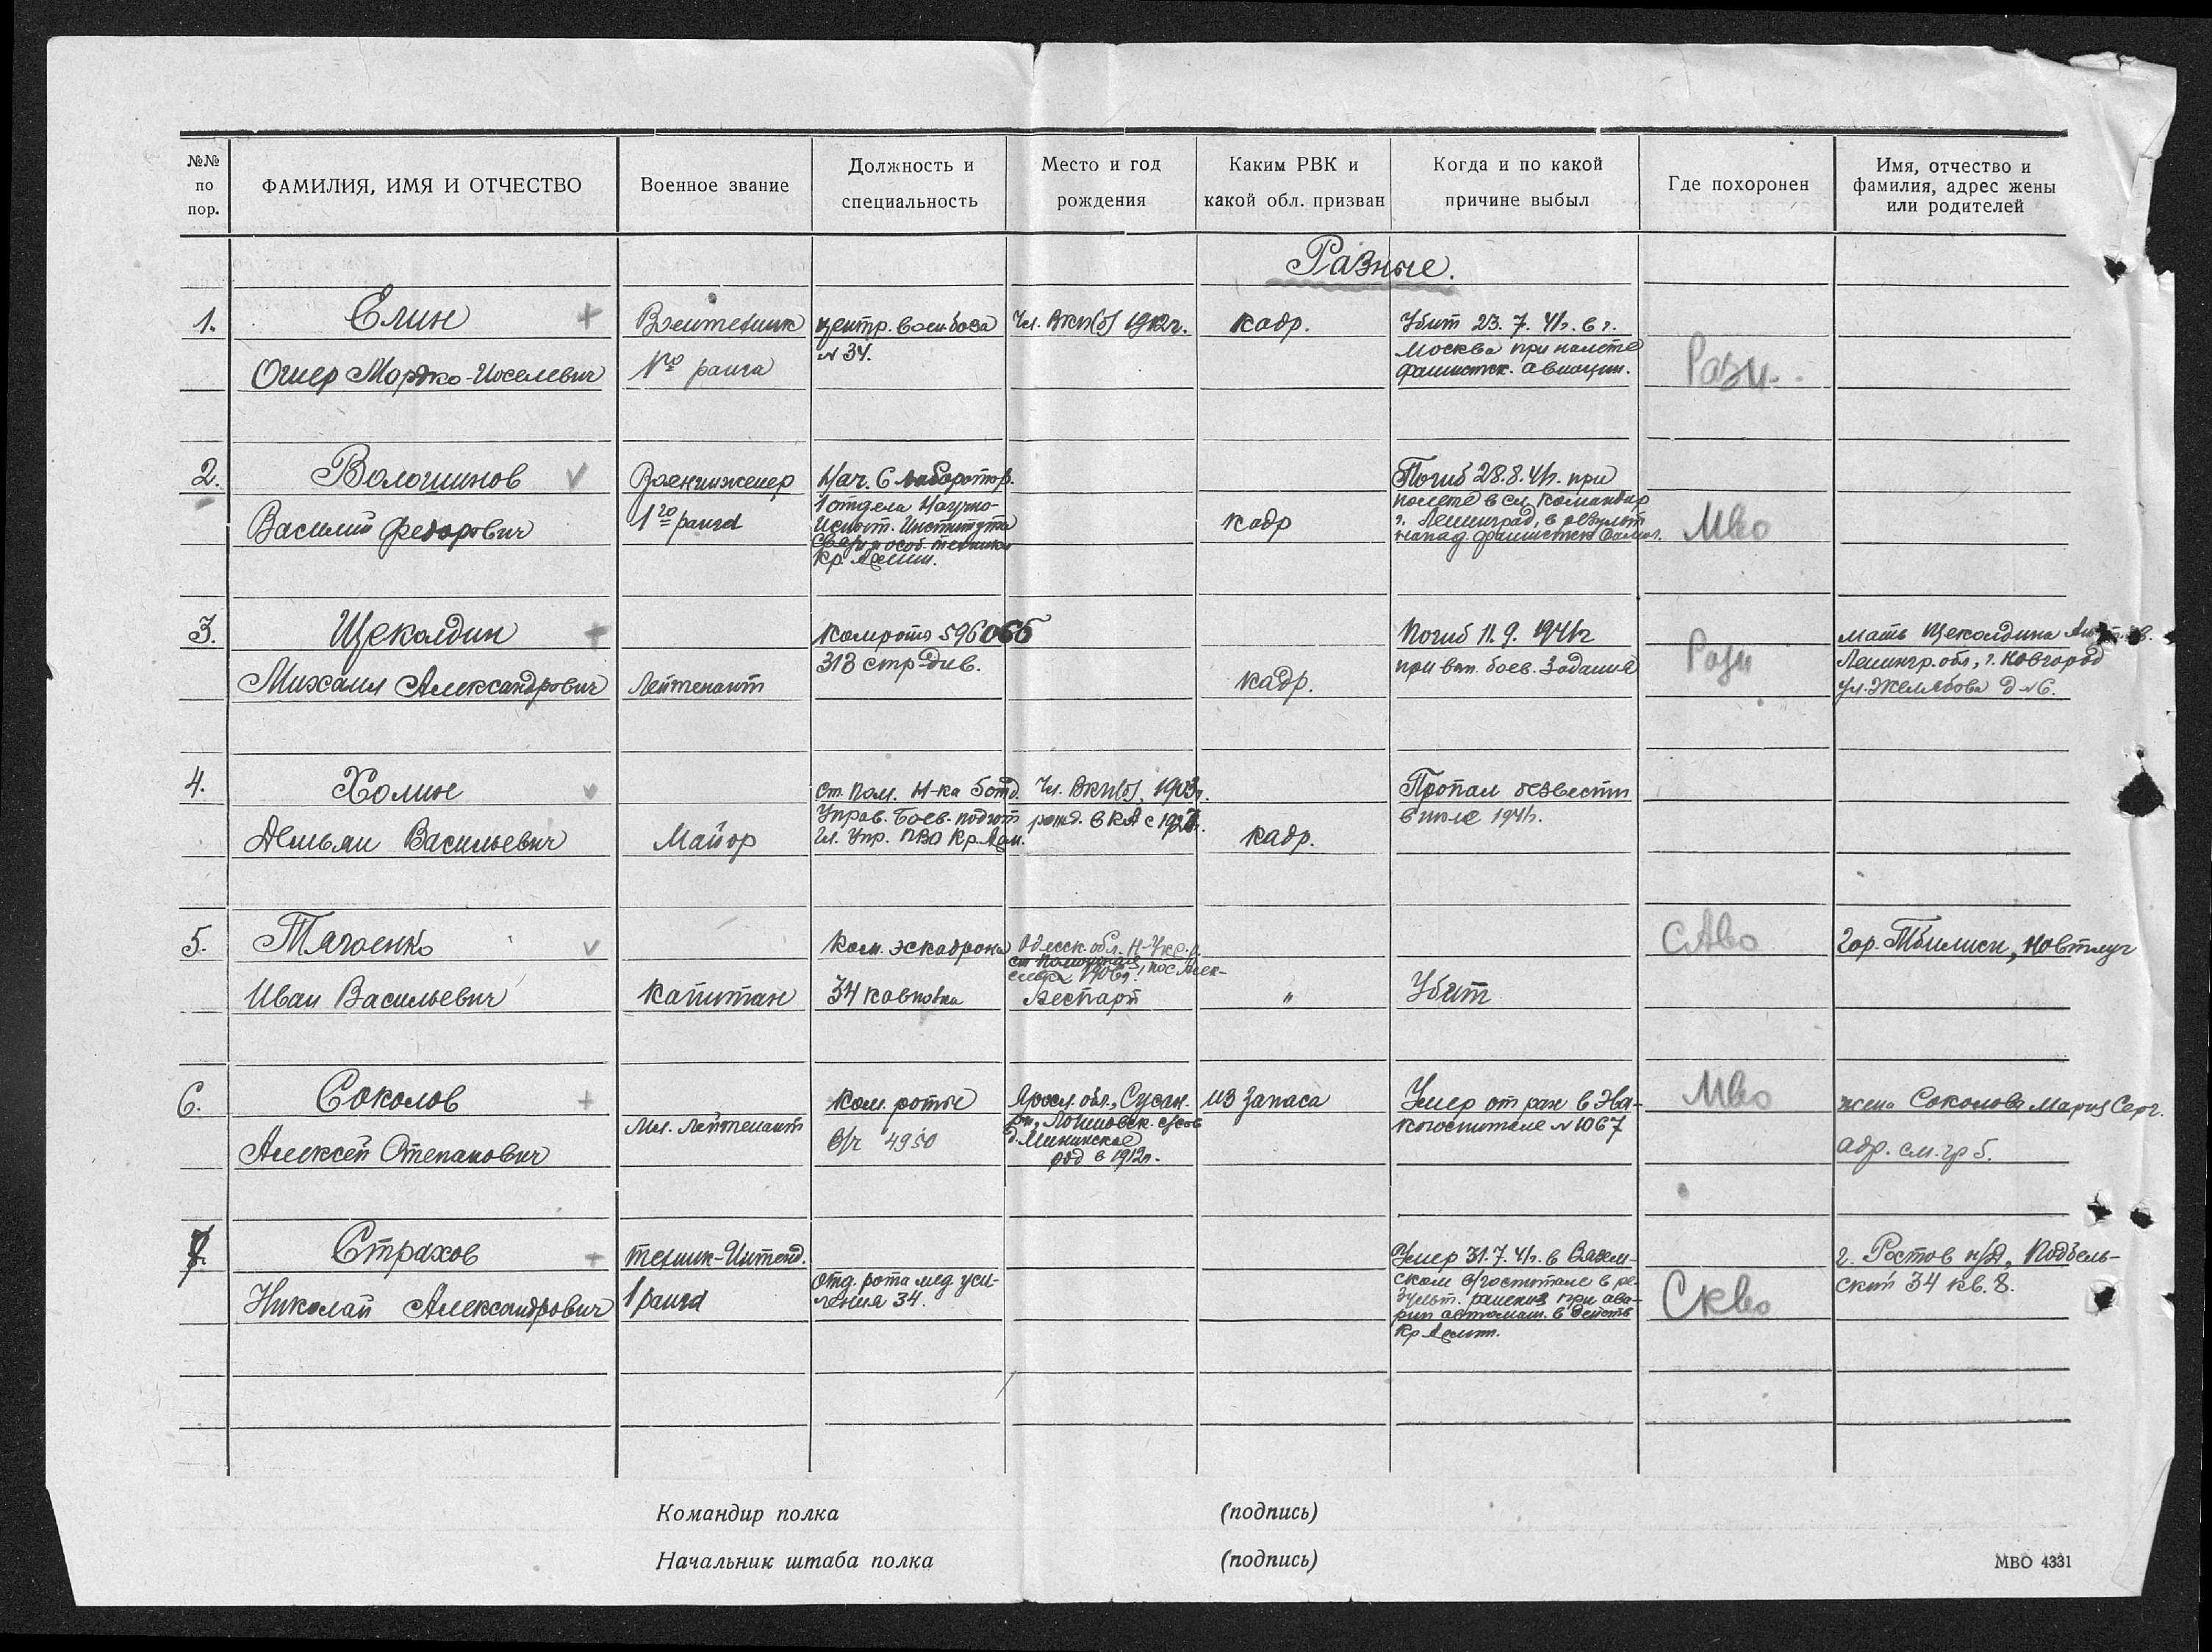 №№ по пор.
ФАМИЛИЯ, ИМЯ И ОТЧЕСТВО
Военное звание
Должность и специальность
Место и год рождения
Каким РВК и какой обл. призван
Когда и по какой причине выбыл
Где похоронен
Имя, отчество и фамилия, адрес жены или родителей
Разные.
1.
Елин +
Ошер Мордко-Иоселевич
Воентехник
1го ранга
центр. военбаза
№ 34.
Чл. ВКП(б) 1912г.
кадр.
Убит 23. 7. 41г. в г.
Москва при налете
фашистск. авиации.
Разн.
2.
Волошинов v
Василий Федорович
Военинженер
1го ранга
Нач. 6 лаборатор.
1 отдела Научно-
Испыт. Института
связи и особ. техники
Кр. Армии.
кадр
Погиб 28.8.41г. при
полете в сл. командир
г. Ленинград, в результ
напад. фашистск самол.
Мво
3.
Щеколдин +
Михаил Александрович
Лейтенант
Комроты 596 обб
313 стр-див.
кадр.
Погиб 11. 9. 1941г
при вып. боев. задания
Разн
мать Щеколдина
Ленингр. обл, г. Новгород
ул. Желябова д №6.
4.
Холин v
Демьян Васильевич
Майор
Ст. Пом. Н-ка 5 отд.
Управ. Боев. подгот
Гл. Упр. ПВО Кр. Арм.
Чл. ВКП(б), 1903г.
рожд. в КА с
кадр.
Пропал безвести
в июле 1941г.
5.
Тягоенко v
Иван Васильевич
Капитан
Ком. эскадрона
34 кавполка
Одесск. обл.
Беспарт
"
Убит
САво
Гор. Тбилиси, Навтлуг
6.
Соколов +
Алексей Степанович
Мл. лейтенант
Ком. роты
в/ч 4950
Яросл. обл., Сусан.
рн,
д. Мининское
род в 1912г.
из запаса
Умер от ран в Эва-
когоспитале № 1067
Мво
жена Соколова Мария Серг.
адр. см. гр 5.
7.
Страхов +
Николай Александрович
Техник-Интенд.
1 ранга
Отд. рота мед. уси-
ления 34.
Умер 31. 7. 41г. в Вязем-
ском в/госпитале в ре-
зульт. ранения при ава-
рии автомаш. в Действ
Кр Армии.
Скво
г. Ростов н/Д, Подбель-
ский 34 кв. 8.
Командир полка (подпись)
Начальник штаба полка (подпись)
МВО 4331